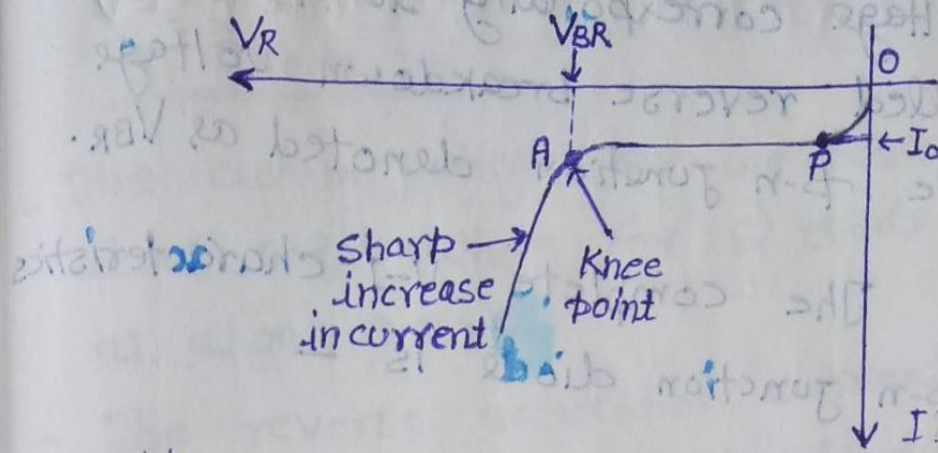 V_R
V_BR
O
A
P
←I_o
Sharp
increase
in current
Knee
point
I